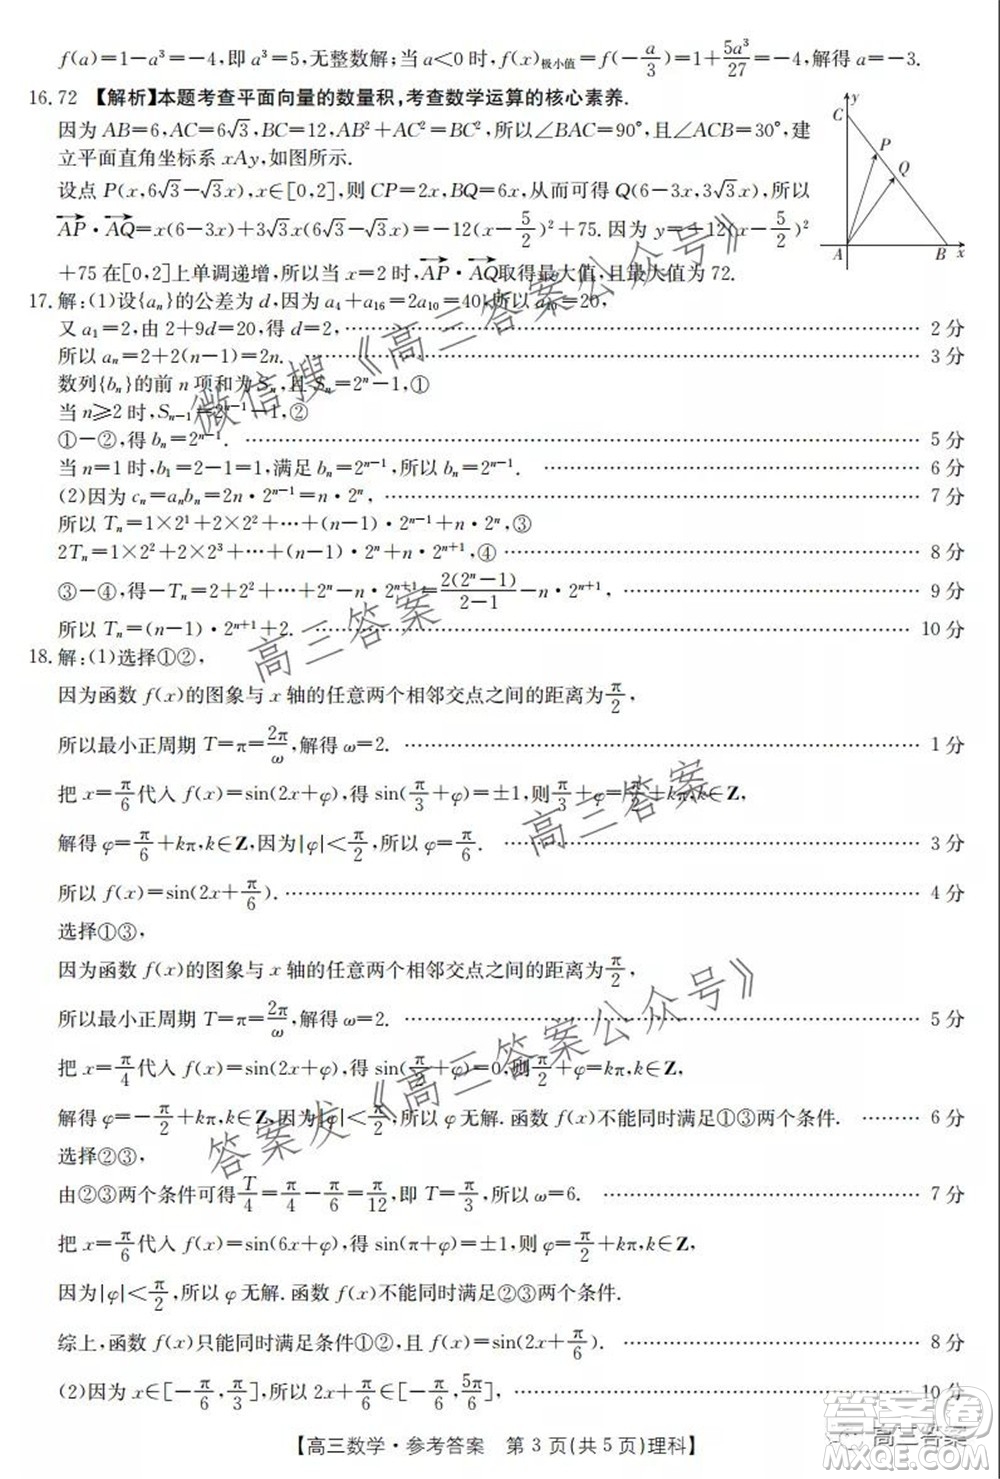 f(a)=1-a³=-4,即 a³=5,无整数解;当 a<0 时,f(x)极小值=f(-a/3)=1+5a³/27=-4,解得 a=-3.
16.72 【解析】本题考查平面向量的数量积,考查数学运算的核心素养.
因为 AB=6,AC=6√3,BC=12,AB²+AC²=BC²,所以∠BAC=90°,且∠ACB=30°,建
立平面直角坐标系 xAy,如图所示.
设点 P(x,6√3-√3x),x∈[0,2],则 CP=2x,BQ=6x,从而可得 Q(6-3x,3√3x),所以
AP·AQ=x(6-3x)+3√3x(6√3-√3x)=-12(x-5/2)²+75.因为 y=-12(x-5/2)²
+75 在[0,2]上单调递增,所以当 x=2 时,AP·AQ取得最大值,且最大值为 72.
y
C
P
Q
A
B
x
17.解:(1)设{aₙ}的公差为 d,因为 a₄+a₁₆=2a₁₀=40,所以 a₁₀=20,
又 a₁=2,由 2+9d=20,得 d=2, 2 分
所以 aₙ=2+2(n-1)=2n. 3 分
数列{bₙ}的前 n 项和为 Sₙ,且 Sₙ=2ⁿ-1,①
当 n≥2 时,Sₙ₋₁=2ⁿ⁻¹-1,②
①-②,得 bₙ=2ⁿ⁻¹. 5 分
当 n=1 时,b₁=2-1=1,满足 bₙ=2ⁿ⁻¹,所以 bₙ=2ⁿ⁻¹. 6 分
(2)因为 cₙ=aₙbₙ=2n·2ⁿ⁻¹=n·2ⁿ, 7 分
所以 Tₙ=1×2¹+2×2²+…+(n-1)·2ⁿ⁻¹+n·2ⁿ,③
2Tₙ=1×2²+2×2³+…+(n-1)·2ⁿ+n·2ⁿ⁺¹,④ 8 分
③-④,得-Tₙ=2+2²+…+2ⁿ-n·2ⁿ⁺¹=2(2ⁿ-1)/2-1-n·2ⁿ⁺¹, 9 分
所以 Tₙ=(n-1)·2ⁿ⁺¹+2. 10 分
18.解:(1)选择①②,
因为函数 f(x)的图象与 x 轴的任意两个相邻交点之间的距离为π/2,
所以最小正周期 T=π=2π/ω,解得 ω=2. 1 分
把 x=π/6代入 f(x)=sin(2x+φ),得 sin(π/3+φ)=±1,则π/3+φ=π/2+kπ,k∈Z,
解得 φ=π/6+kπ,k∈Z,因为|φ|<π/2,所以 φ=π/6. 3 分
所以 f(x)=sin(2x+π/6). 4 分
选择①③,
因为函数 f(x)的图象与 x 轴的任意两个相邻交点之间的距离为π/2,
所以最小正周期 T=π=2π/ω,解得 ω=2. 5 分
把 x=π/4代入 f(x)=sin(2x+φ),得 sin(π/2+φ)=0,则π/2+φ=kπ,k∈Z,
解得 φ=-π/2+kπ,k∈Z,因为|φ|<π/2,所以 φ 无解.函数 f(x)不能同时满足①③两个条件. 6 分
选择②③,
由②③两个条件可得T/4=π/4-π/6=π/12,即 T=π/3,所以 ω=6. 7 分
把 x=π/6代入 f(x)=sin(6x+φ),得 sin(π+φ)=±1,则 φ=π/2+kπ,k∈Z,
因为|φ|<π/2,所以 φ 无解.函数 f(x)不能同时满足②③两个条件.
综上,函数 f(x)只能同时满足条件①②,且 f(x)=sin(2x+π/6). 8 分
(2)因为 x∈[-π/6,π/3],所以 2x+π/6∈[-π/6,5π/6], 10 分
【高三数学·参考答案 第 3 页(共 5 页)理科】
微信搜《高三答案公众号》
高三答案
高三答案
答案发《高三答案公众号》
高三答案
答案圈